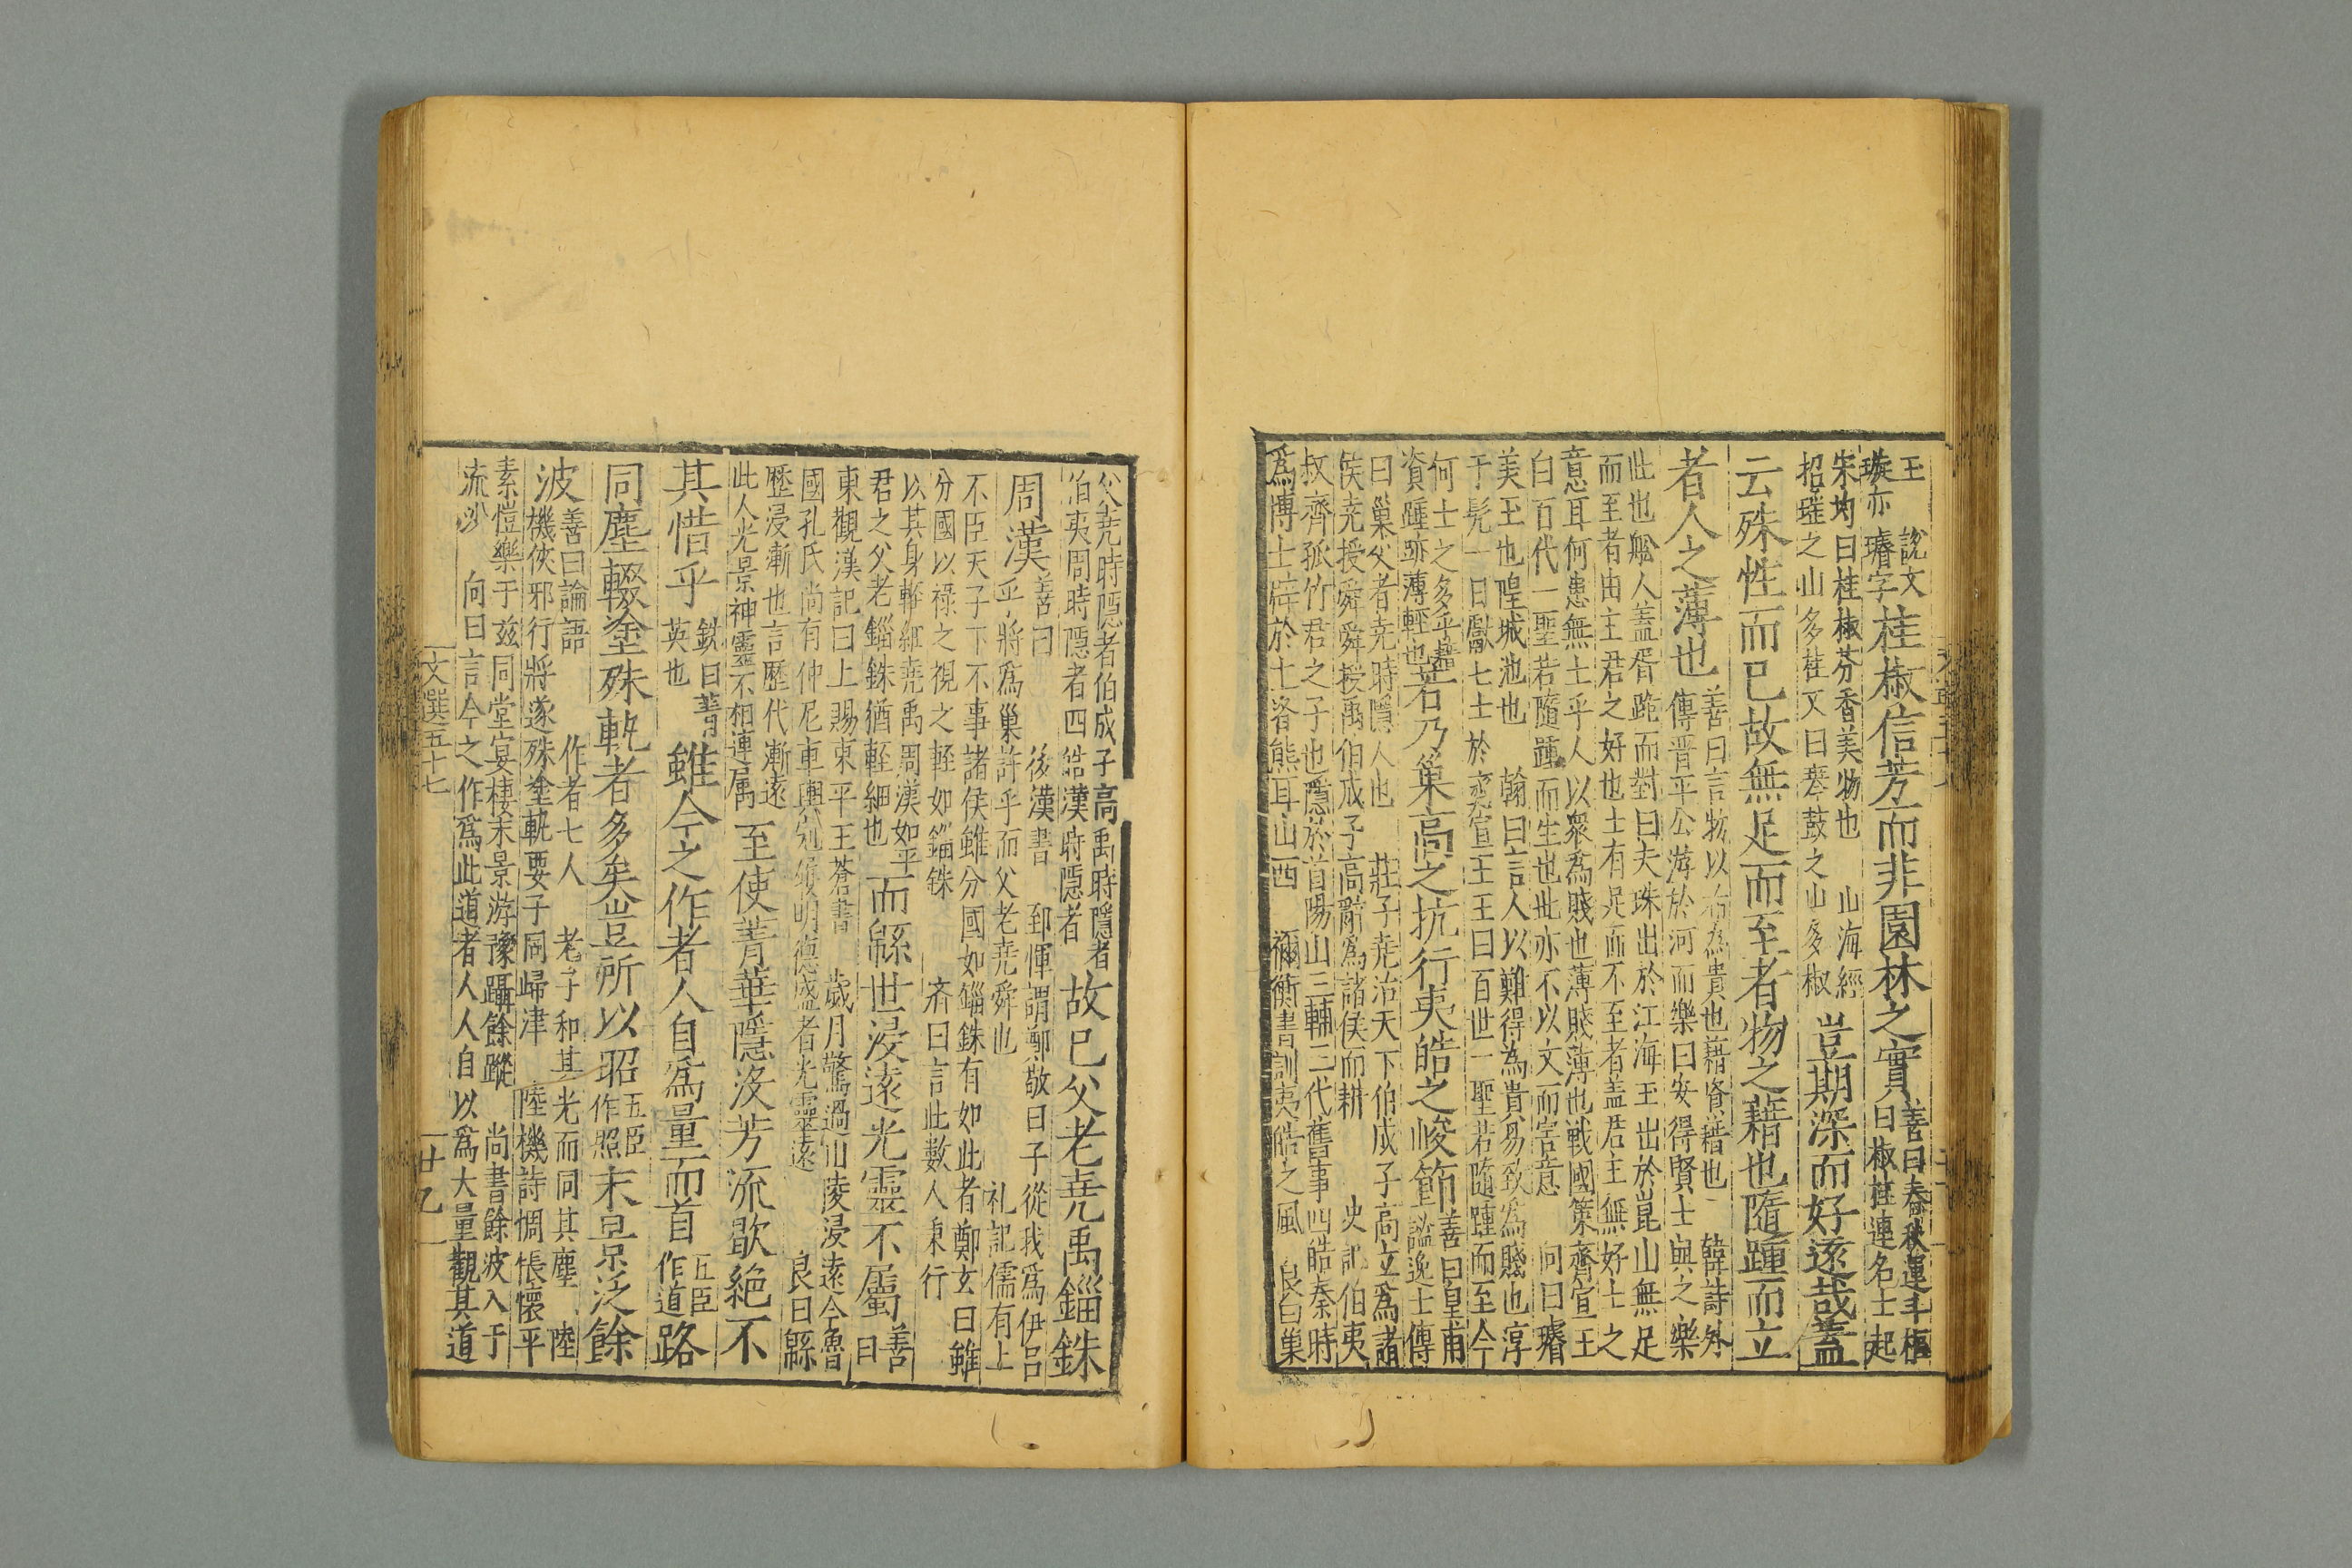 王 說文
璇亦 璿字 桂椒信芳而非園林之實 善曰春秋運斗樞
曰椒桂連名士起
宋均曰桂椒芬香美物也 山海經
招搖之山多桂又曰琴鼓之山多椒 豈期深而好遠哉蓋
云殊性而已故無足而至者物之藉也隨踵而立
者人之薄也 善曰言物以希爲貴也藉資藉也 韓詩外
傳晋平公游於河而樂曰安得賢士與之樂
此也舩人蓋胥跪而對曰夫珠出於江海玉出於崑山無足
而至者由主君之好也士有足而不至者蓋君主無好士之
意耳何患無士乎人以衆爲賤也薄賤薄也戰國策齊宣王
曰百代一聖若隨踵而生也此亦不以文而害意 向曰璿
美玉也隍城池也 翰曰言人以難得為貴易致為賤也淳
于髡一日獻七士於齊宣王王曰百世一聖若隨踵而至今
何士之多乎
資踵跡薄輕也 若乃巢高之抗行夷皓之峻節 善曰皇甫
謐逸士傳
曰巢父者尭時隱人也 莊子尭治天下伯成子高立爲諸
侯尭授舜舜授禹伯成子高辭爲諸侯而耕 史記伯夷
叔齊孤竹君之子也隱於首陽山三輔三代舊事四皓秦時
爲博士辟於上洛熊耳山西 禰衡書訓夷皓之風 良曰巢
父尭時隱者伯成子高禹時隱者
伯夷周時隱者四皓漢時隱者 故已父老尭禹錙銖
周漢 善曰 後漢書 郅惲謂鄭敬曰子從我爲伊吕
乎將爲巢許乎而父老尭舜也 礼記儒有上
不臣天子下不事諸侯雖分國如錙銖有如此者鄭玄曰雖
分國以祿之視之輕如錙銖 济曰言此數人秉行
以其身輕細尭禹周漢如平
君之父老錙銖猶輕細也 而緜世浸遠光靈不屬 善
曰
東觀漢記曰上賜東平王蒼書 歲月驚過山陵浸遠今魯
國孔氏尚有仲尼車輿冠履明德盛者光靈遠 良曰緜
歷浸漸也言歷代漸遠
此人光景神靈不相連属 至使菁華隱沒芳流歇絶不
其惜乎 銑曰菁
英也 雖今之作者人自爲量而首 五臣
作道 路
同塵輟塗殊軌者多矣豈所以昭 五臣
作照 末景泛餘
波 善曰論語 作者七人 老子和其光而同其塵 陸
機俠邪行將遂殊塗軌要子同歸津 陸機詩惆悵懷平
素愷樂于兹同堂宴棲末景游豫躡餘蹤 尚書餘波入于
流沙 向曰言今之作爲此道者人人自以爲大量觀其道
文選五十七
廿九